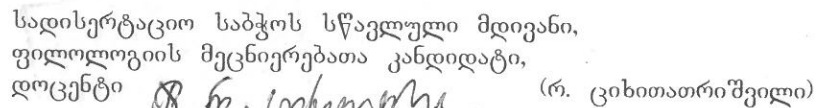 სადისერტაციო საბჭოს სწავლული მდივანი,
ფილოლოგიის მეცნიერებათა კანდიდატი,
დოცენტი (რ. ციხითათრიშვილი)